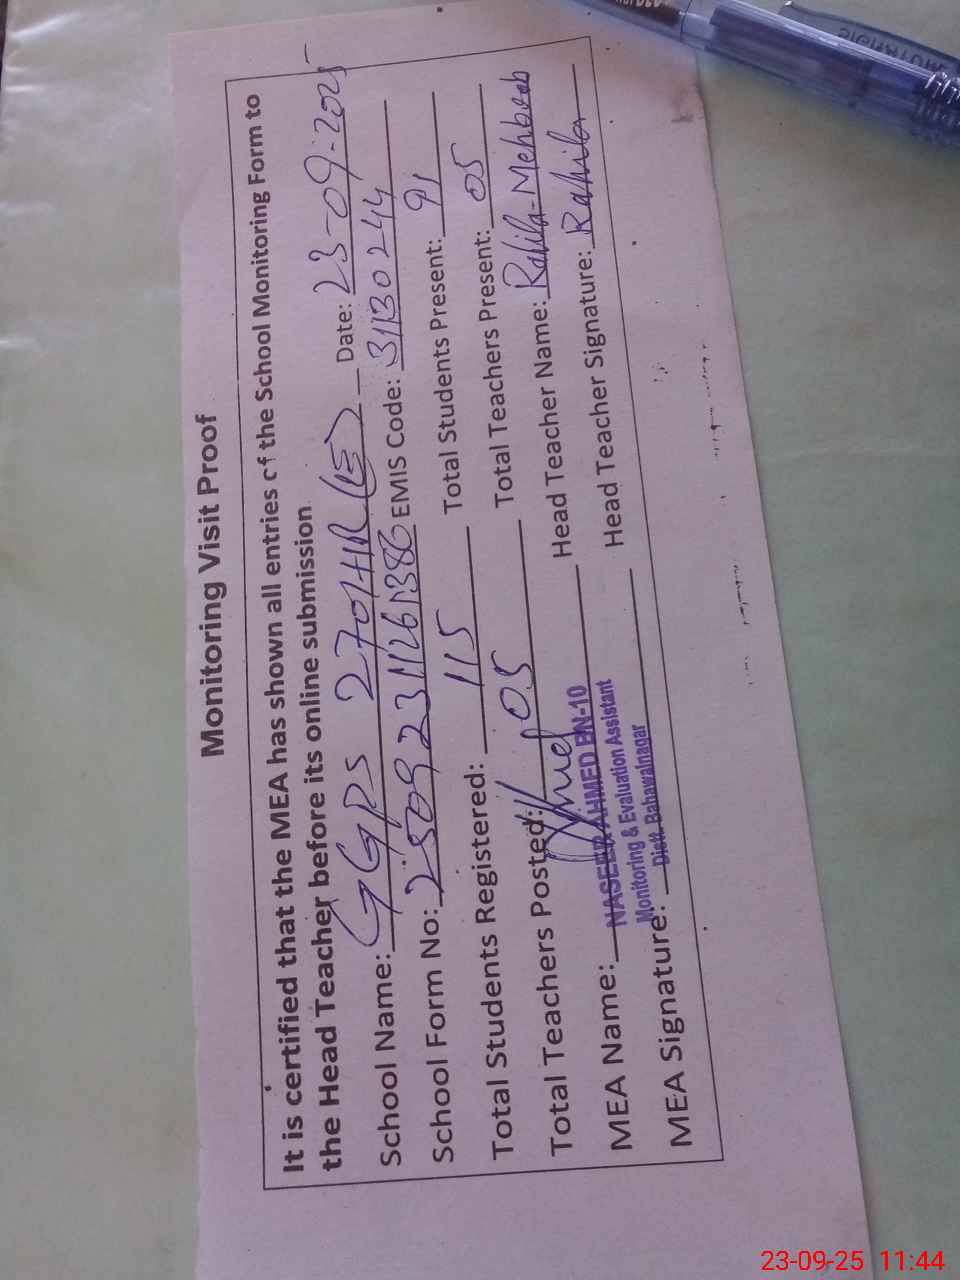 Monitoring Visit Proof
It is certified that the MEA has shown all entries of the School Monitoring Form to
the Head Teacher before its online submission.
School Name: GGPS 270HR Date: 23-09-2025
School Form No: 25092311261386 EMIS Code: 31130244
Total Students Registered: 115 Total Students Present: 91
Total Teachers Posted: 05 Total Teachers Present: 05
MEA Name: Head Teacher Name: Rahila-Mehboob
NASEER AHMED BN-10
Monitoring & Evaluation Assistant
Distt. Bahawalnagar
MEA Signature: Head Teacher Signature: Rahila
23-09-25 11:44